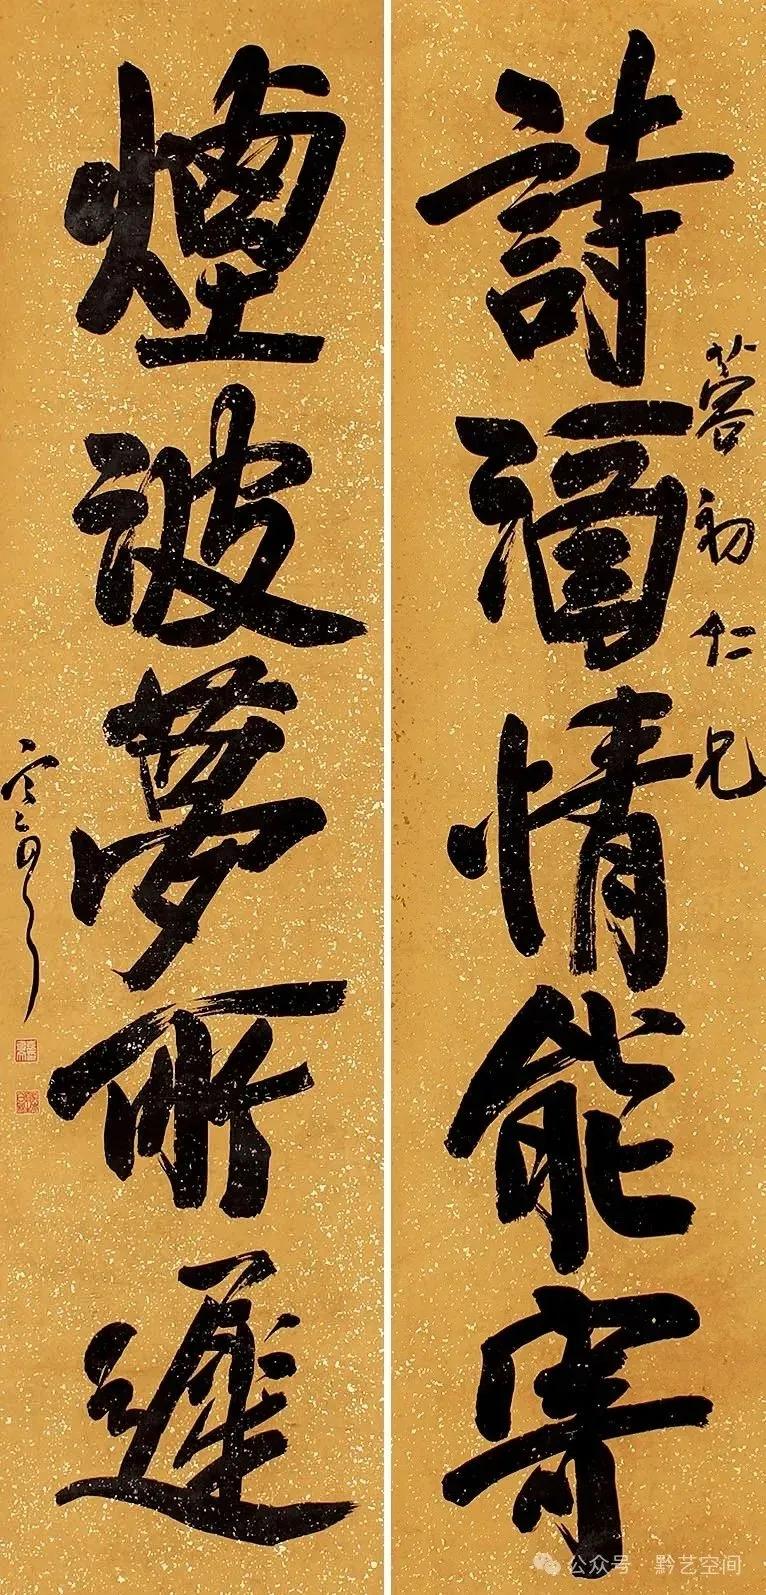 詩酒情能寄
蓉初仁兄
煙波夢所遲
公众号 · 黔艺空间